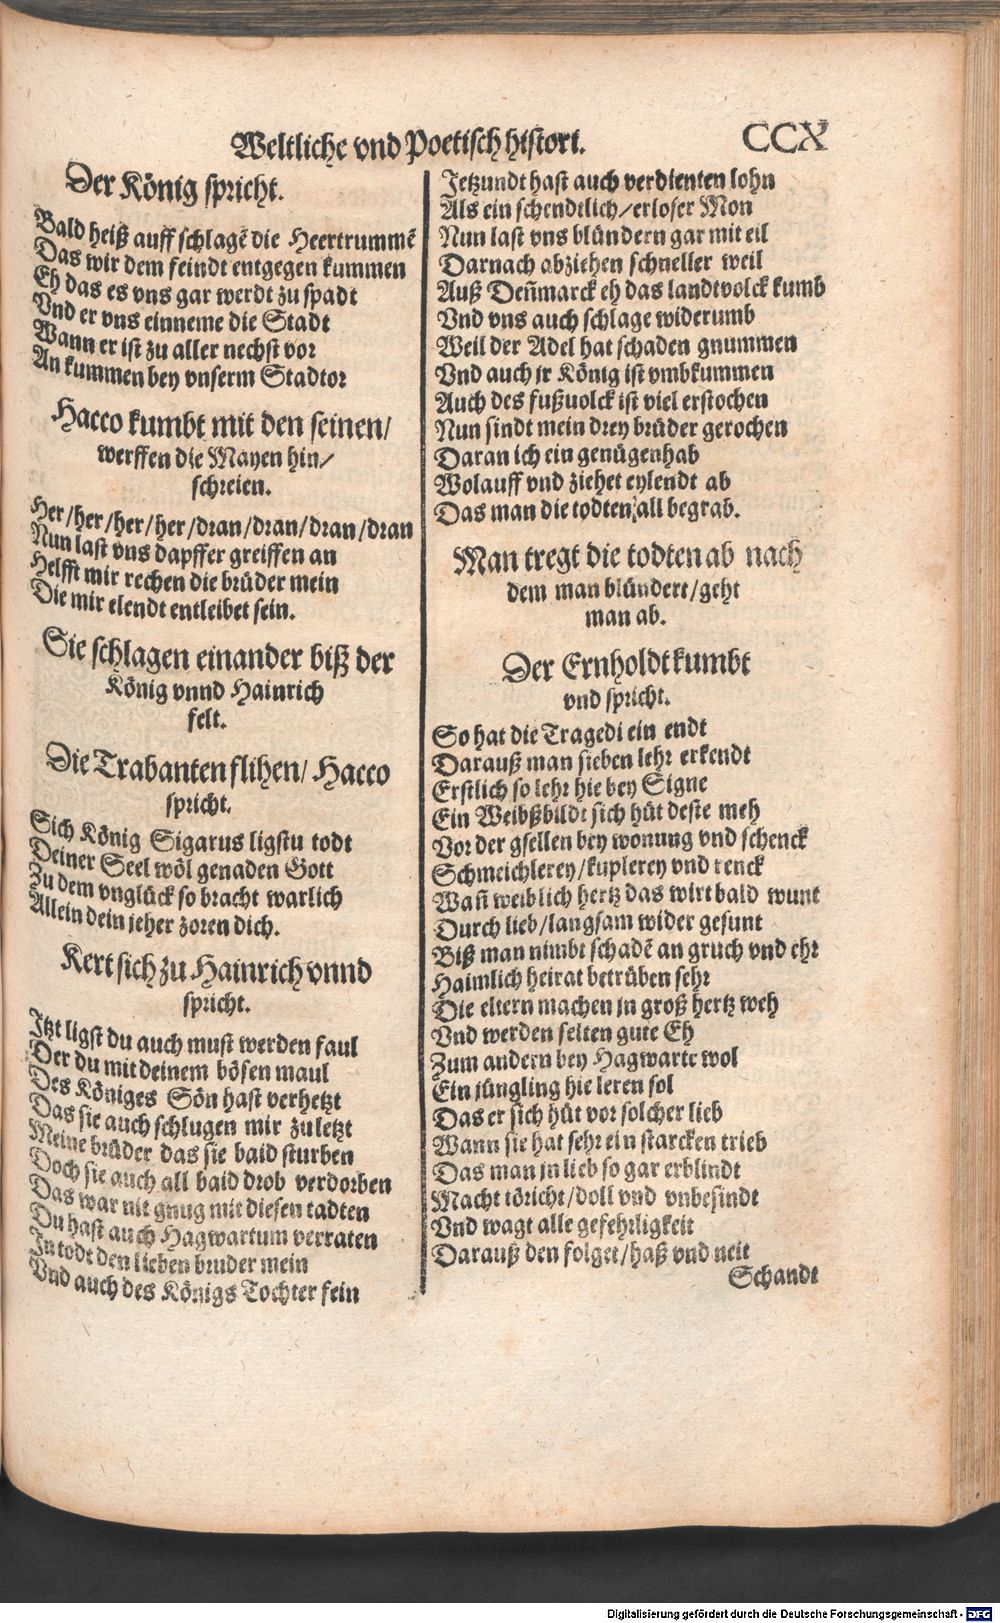 Weltliche vnd Poetisch histori.
CCX
Der König spricht.
Bald heiß auff schlagẽ die Heertrummẽ
Das wir dem feindt entgegen kummen
Eh das es vns gar werdt zu spadt
Vnd er vns einneme die Stadt
Wann er ist zu aller nechst vor
An kummen bey vnserm Stadtor
Hacco kumbt mit den seinen/
werffen die Mayen hin/
schreien.
Her/her/her/her/dran/dran/dran/dran
Nun last vns dapffer greiffen an
Helfft mir rechen die brüder mein
Die mir elendt entleibet sein.
Sie schlagen einander biß der
König vnnd Hainrich
felt.
Die Trabanten flihen/ Hacco
spricht.
Sich König Sigarus ligstu todt
Deiner Seel wöl genaden Gott
Zu dem vnglück so bracht warlich
Allein dein jeher zoren dich.
Kert sich zu Hainrich vnnd
spricht.
Itzt ligst du auch must werden faul
Der du mit deinem bösen maul
Des Königes Sön hast verhetzt
Das sie auch schlugen mir zu letzt
Meine brüder das sie baid sturben
Doch sie auch all baid drob verdorben
Das war nit gnug mit diesen tadten
Du hast auch Hagwartum verraten
In todt den lieben bruder mein
Vnd auch des Königs Tochter fein
Jetzundt hast auch verdienten lohn
Als ein schendtlich/erloser Mon
Nun last vns blündern gar mit eil
Darnach abziehen schneller weil
Auß Deñmarck eh das landtvolck kumb
Vnd vns auch schlage widerumb
Weil der Adel hat schaden gnummen
Vnd auch jr König ist vmbkummen
Auch des fußuolck ist viel erstochen
Nun sindt mein drey brüder gerochen
Daran ich ein genügen hab
Wolauff vnd ziehet eylendt ab
Das man die todten all begrab.
Man tregt die todten ab nach
dem man blündert/geht
man ab.
Der Ernholdt kumbt
vnd spricht.
So hat die Tragedi ein endt
Darauß man sieben lehr erkendt
Erstlich so lehr hie bey Signe
Ein Weibßbildt sich hüt deste meh
Vor der gsellen bey wonung vnd schenck
Schmeichlerey/kuplerey vnd renck
Wañ weiblich hertz das wirt bald wunt
Durch lieb/langsam wider gesunt
Biß man nimbt schadẽ an gruch vnd ehr
Haimlich heirat betrüben sehr
Die eltern machen jn groß hertz weh
Vnd werden selten gute Eh
Zum andern bey Hagwarte wol
Ein jüngling hie leren sol
Das er sich hüt vor solcher lieb
Wann sie hat sehr ein starcken trieb
Das man jn lieb so gar erblindt
Macht töricht/doll vnd vnbesindt
Vnd wagt alle gefehrligkeit
Darauß den folget/haß vnd neit
Schandt
Digitalisierung gefördert durch die Deutsche Forschungsgemeinschaft - DFG